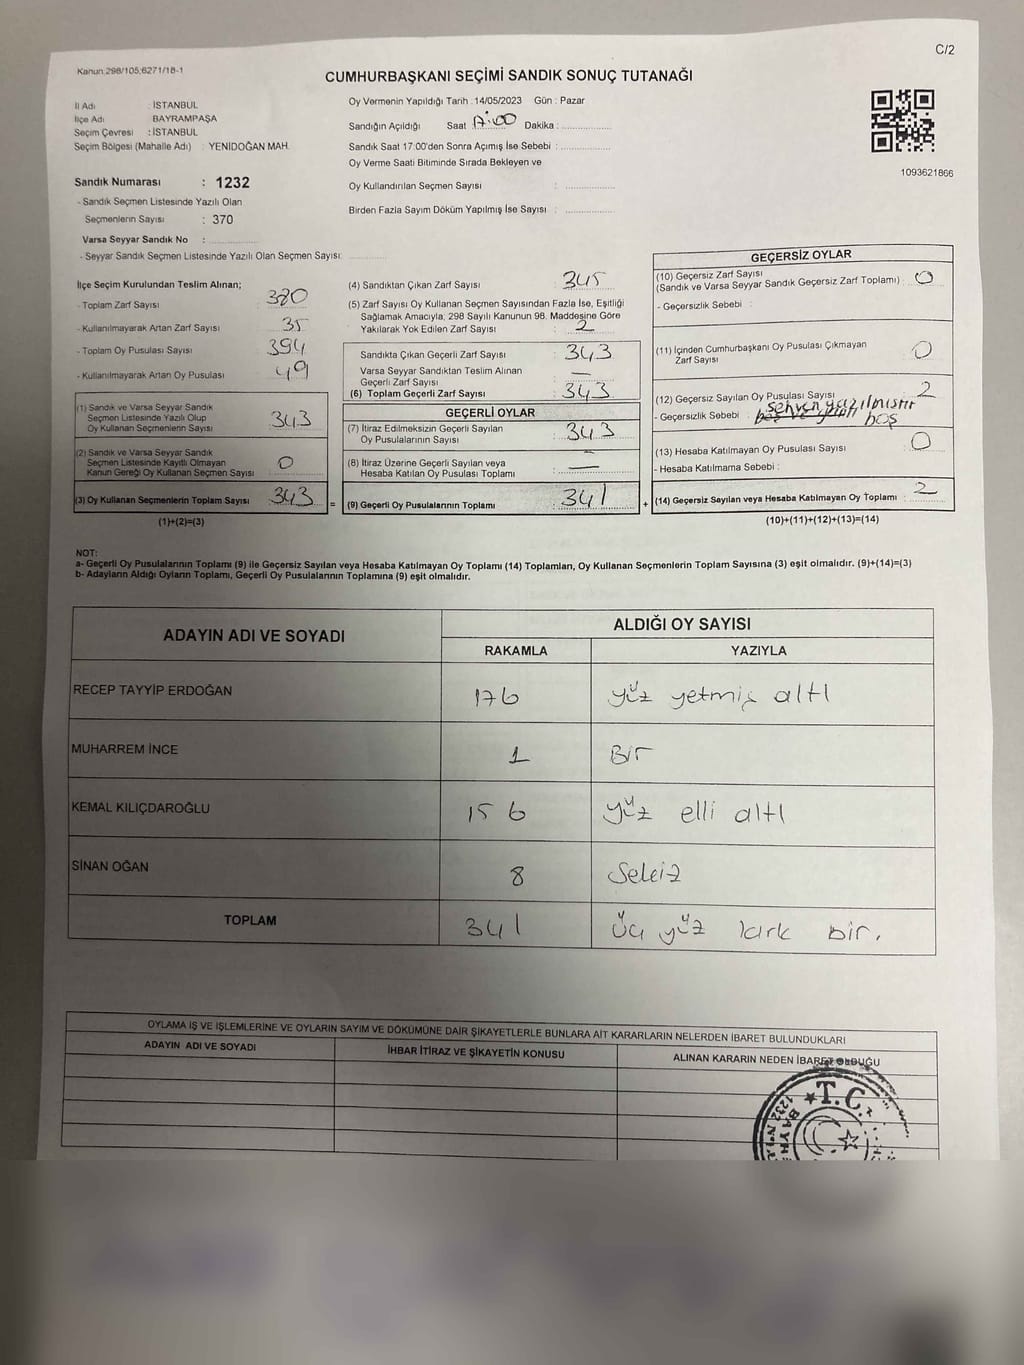 C/2
Kanun:298/105;6271/18-1
CUMHURBAŞKANI SEÇİMİ SANDIK SONUÇ TUTANAĞI
İl Adı : İSTANBUL
İlçe Adı : BAYRAMPAŞA
Seçim Çevresi : İSTANBUL
Seçim Bölgesi (Mahalle Adı) : YENİDOĞAN MAH.
Sandık Numarası : 1232
- Sandık Seçmen Listesinde Yazılı Olan
Seçmenlerin Sayısı : 370
Varsa Seyyar Sandık No :
- Seyyar Sandık Seçmen Listesinde Yazılı Olan Seçmen Sayısı:
Oy Vermenin Yapıldığı Tarih :14/05/2023 Gün : Pazar
Sandığın Açıldığı Saat 17:00 Dakika :
Sandık Saat 17:00'den Sonra Açımış İse Sebebi :
Oy Verme Saati Bitiminde Sırada Bekleyen ve
Oy Kullandırılan Seçmen Sayısı :
Birden Fazla Sayım Döküm Yapılmış İse Sayısı :
1093621866
İlçe Seçim Kurulundan Teslim Alınan;
- Toplam Zarf Sayısı : 380
- Kullanılmayarak Artan Zarf Sayısı : 35
- Toplam Oy Pusulası Sayısı : 394
- Kullanılmayarak Artan Oy Pusulası : 49
(1) Sandık ve Varsa Seyyar Sandık
Seçmen Listesinde Yazılı Olup
Oy Kullanan Seçmenlerin Sayısı : 343
(2) Sandık ve Varsa Seyyar Sandık
Seçmen Listesinde Kayıtlı Olmayan
Kanun Gereği Oy Kullanan Seçmen Sayısı : 0
(3) Oy Kullanan Seçmenlerin Toplam Sayısı : 343
(1)+(2)=(3)
(4) Sandıktan Çıkan Zarf Sayısı : 345
(5) Zarf Sayısı Oy Kullanan Seçmen Sayısından Fazla İse, Eşitliği
Sağlamak Amacıyla, 298 Sayılı Kanunun 98. Maddesine Göre
Yakılarak Yok Edilen Zarf Sayısı : 2
Sandıkta Çıkan Geçerli Zarf Sayısı : 343
Varsa Seyyar Sandıktan Teslim Alınan
Geçerli Zarf Sayısı : —
(6) Toplam Geçerli Zarf Sayısı : 343
GEÇERLİ OYLAR
(7) İtiraz Edilmeksizin Geçerli Sayılan
Oy Pusulalarının Sayısı : 343
(8) İtiraz Üzerine Geçerli Sayılan veya
Hesaba Katılan Oy Pusulası Toplamı : —
= (9) Geçerli Oy Pusulalarının Toplamı : 341 +
GEÇERSİZ OYLAR
(10) Geçersiz Zarf Sayısı
(Sandık ve Varsa Seyyar Sandık Geçersiz Zarf Toplamı) : 0
- Geçersizlik Sebebi :
(11) İçinden Cumhurbaşkanı Oy Pusulası Çıkmayan
Zarf Sayısı : 0
(12) Geçersiz Sayılan Oy Pusulası Sayısı : 2
- Geçersizlik Sebebi : sehven yazılmıştır
boş
(13) Hesaba Katılmayan Oy Pusulası Sayısı : 0
- Hesaba Katılmama Sebebi :
(14) Geçersiz Sayılan veya Hesaba Katılmayan Oy Toplamı : 2
(10)+(11)+(12)+(13)=(14)
NOT:
a- Geçerli Oy Pusulalarının Toplamı (9) ile Geçersiz Sayılan veya Hesaba Katılmayan Oy Toplamı (14) Toplamları, Oy Kullanan Seçmenlerin Toplam Sayısına (3) eşit olmalıdır. (9)+(14)=(3)
b- Adayların Aldığı Oyların Toplamı, Geçerli Oy Pusulalarının Toplamına (9) eşit olmalıdır.
ADAYIN ADI VE SOYADI
ALDIĞI OY SAYISI
RAKAMLA YAZIYLA
RECEP TAYYİP ERDOĞAN 176 yüz yetmiş altı
MUHARREM İNCE 1 Bir
KEMAL KILIÇDAROĞLU 156 yüz elli altı
SİNAN OĞAN 8 Sekiz
TOPLAM 341 üç yüz kırk bir.
OYLAMA İŞ VE İŞLEMLERİNE VE OYLARIN SAYIM VE DÖKÜMÜNE DAİR ŞİKAYETLERLE BUNLARA AİT KARARLARIN NELERDEN İBARET BULUNDUKLARI
ADAYIN ADI VE SOYADI
İHBAR İTİRAZ VE ŞİKAYETİN KONUSU
ALINAN KARARIN NEDEN İBARET OLDUĞU
T.C.